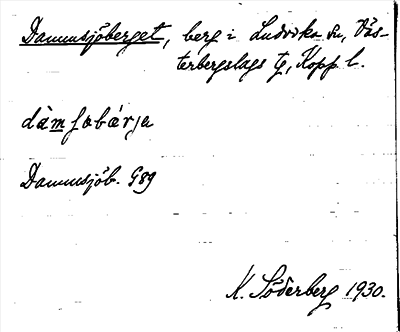 Dammsjöberget, berg i Ludvika sn, Väs-
terbergslags tg, Kopp. l.
dàmʃøbærja
Dammsjöb. G89
K. Söderberg 1930.